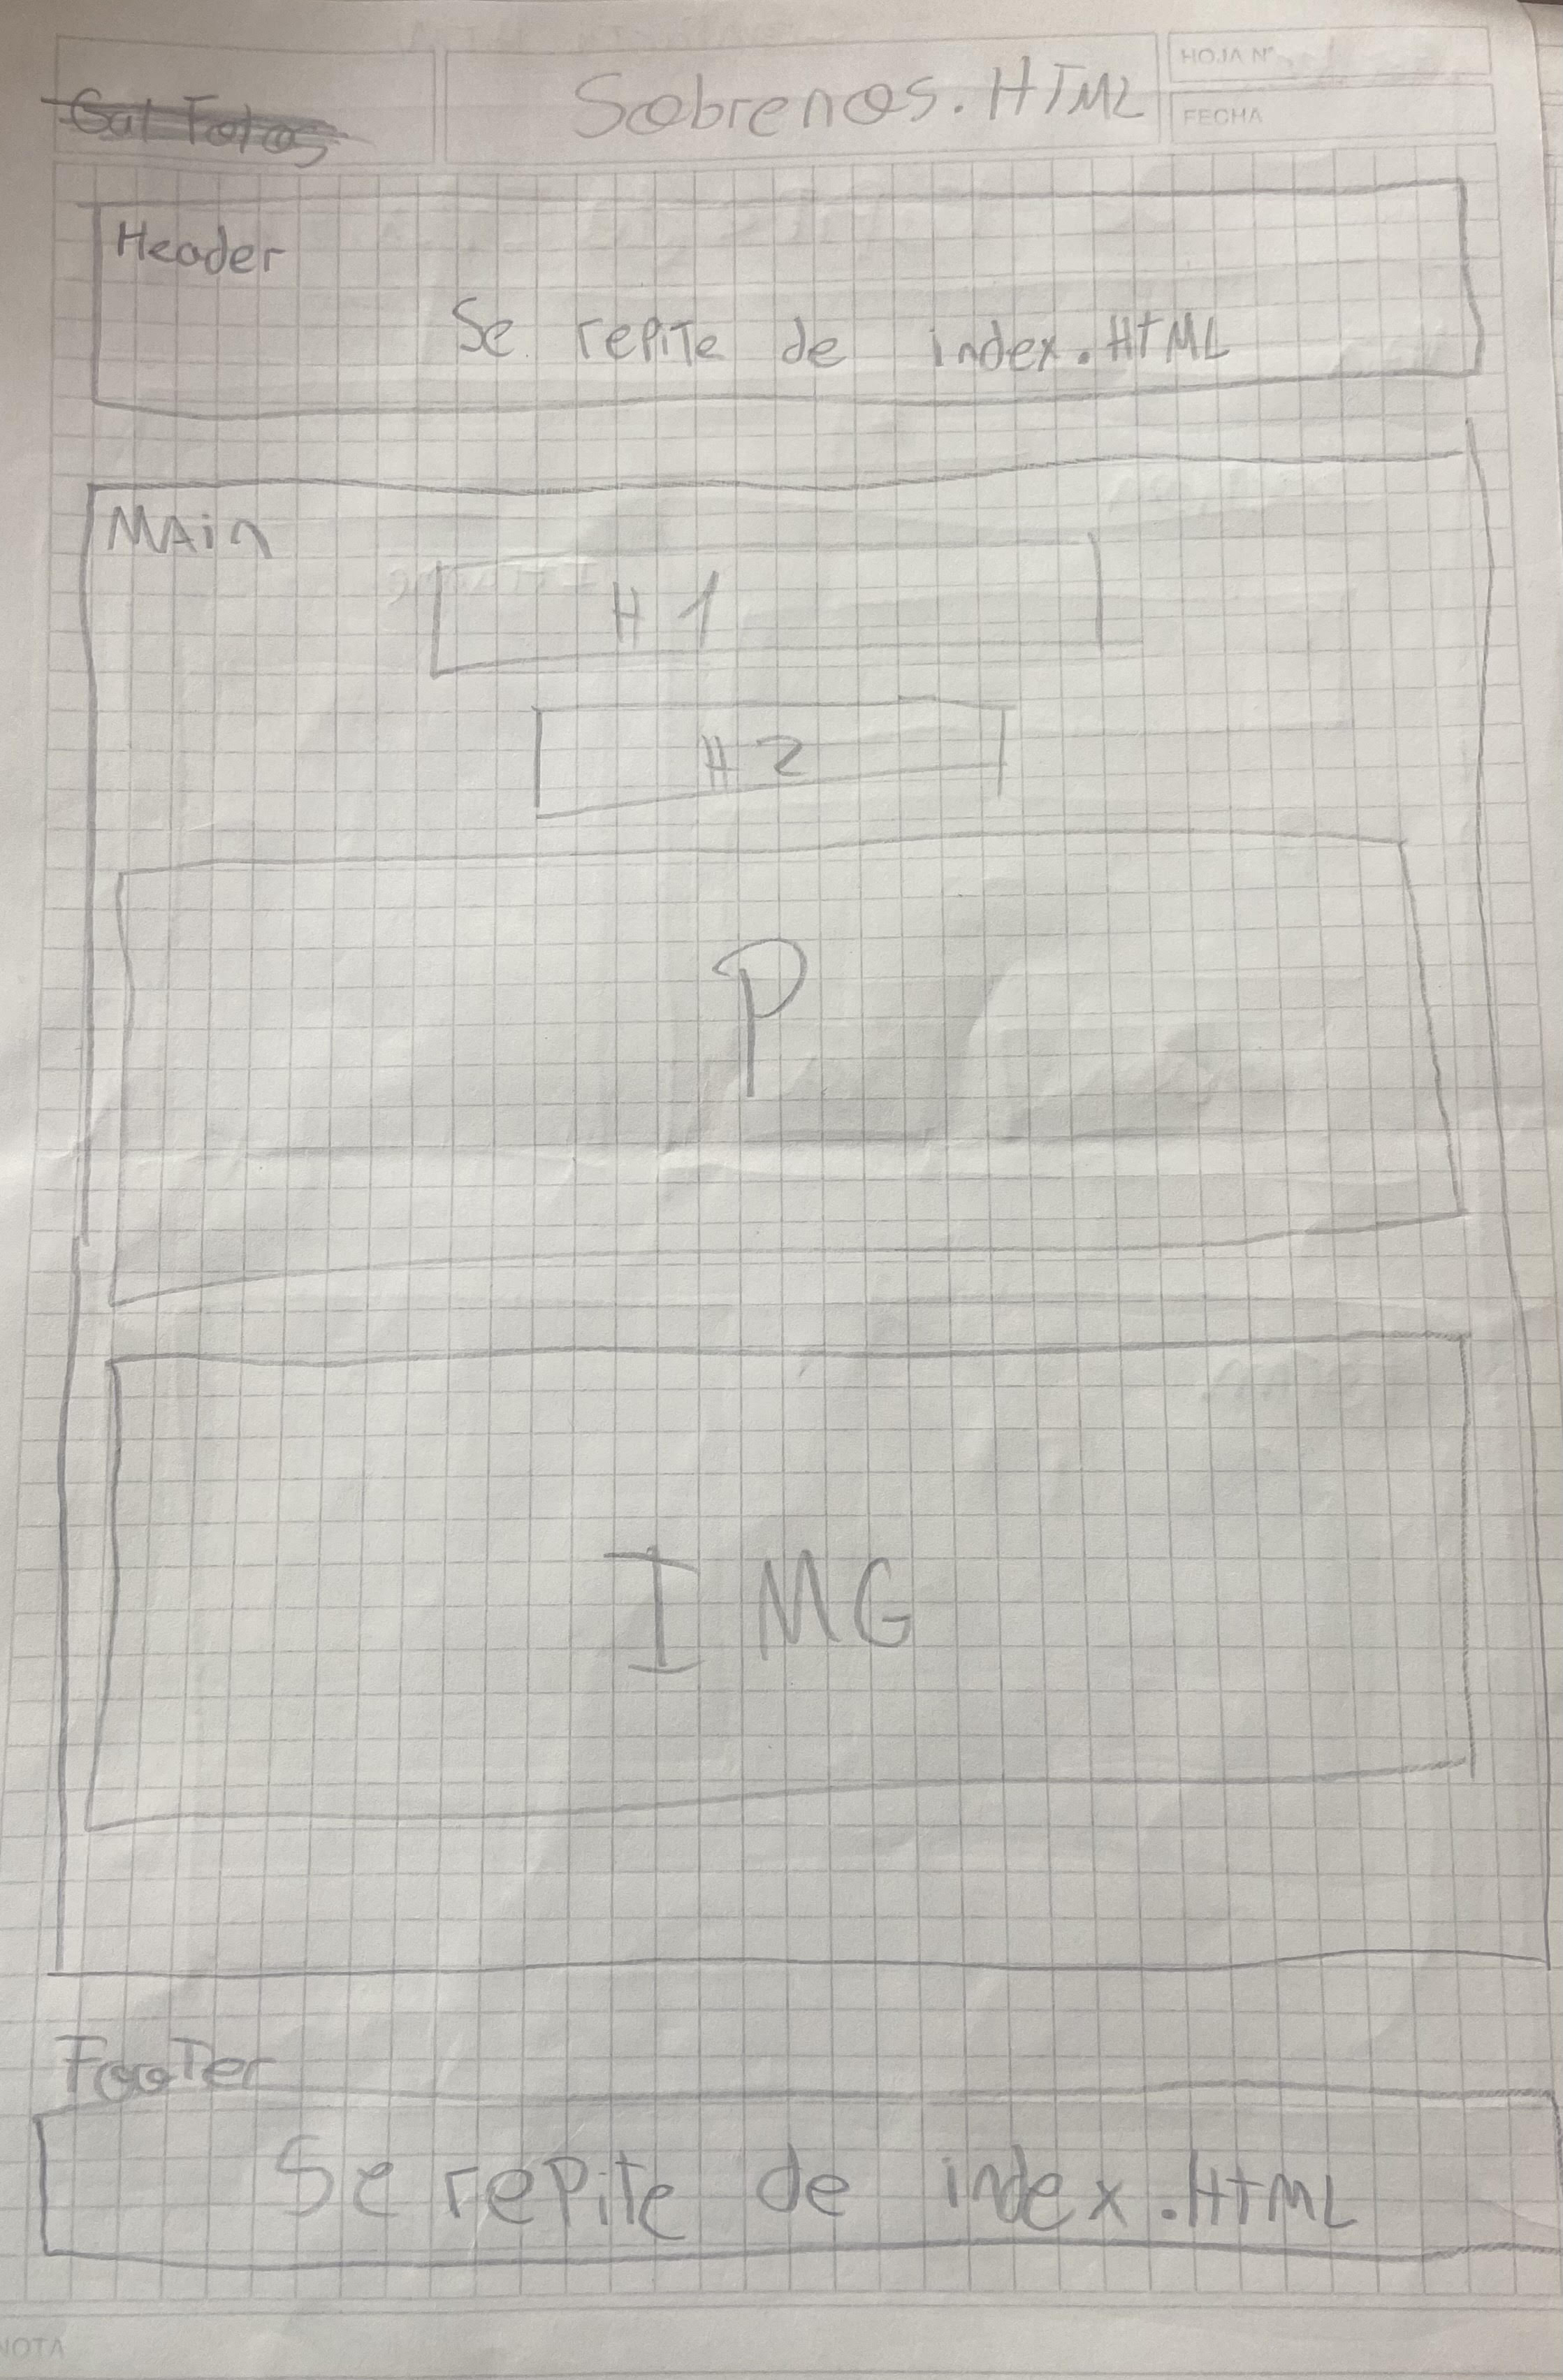 HOJA Nº
Gal Fotos
Sobrenos.HTML
FECHA
Header
Se repite de index.HTML
MAin
H1
H2
P
IMG
FooTer
Se repite de index.HTML
NOTA